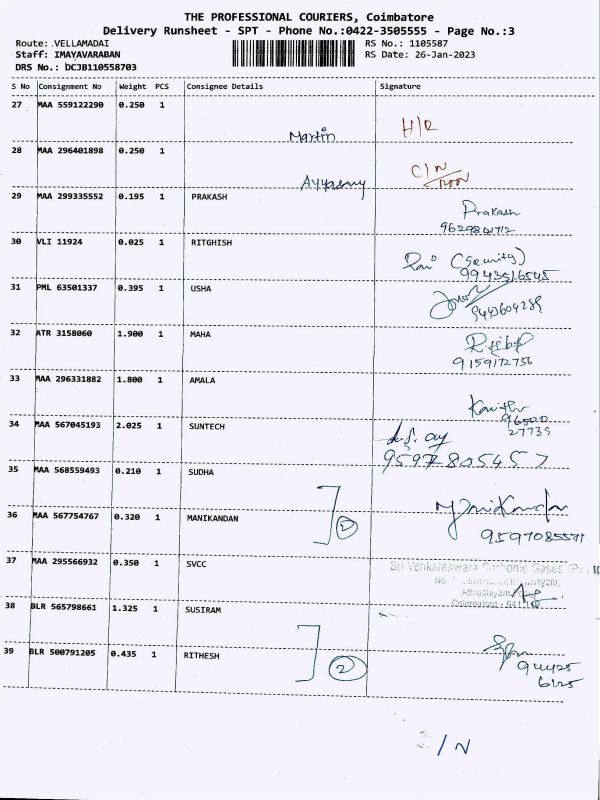 THE PROFESSIONAL COURIERS, Coimbatore
Delivery Runsheet - SPT - Phone No.:0422-3505555 - Page No.:3
Route: VELLAMADAI RS No.: 1105587
Staff: IMAYAVARABAN RS Date: 26-Jan-2023
DRS No.: DCJB110558703
S No Consignment No Weight PCS Consignee Details Signature
27 MAA 559122290 0.250 1
Martin H/R
28 MAA 296401898 0.250 1
C/N
Ayyasamy
29 MAA 299335552 0.195 1 PRAKASH
Prakash
30 VLI 11924 0.025 1 RITGHISH
(Security)
9943516545
31 PML 63501337 0.395 1 USHA
9443604289
32 ATR 3158060 1.900 1 MAHA
9159172756
33 MAA 296331882 1.800 1 AMALA
96500
27739
34 MAA 567045193 2.025 1 SUNTECH
9597805457
35 MAA 568559493 0.210 1 SUDHA
2 Manikandan
36 MAA 567754767 0.320 1 MANIKANDAN
9597085571
37 MAA 295566932 0.350 1 SVCC
Sri Venkateswara Carbonic Gases (P)
No.
Athipalayam
Coimbatore - 641 110
38 BLR 565798661 1.325 1 SUSIRAM
39 BLR 500791205 0.435 1 RITHESH
2
94425
6125
/ N